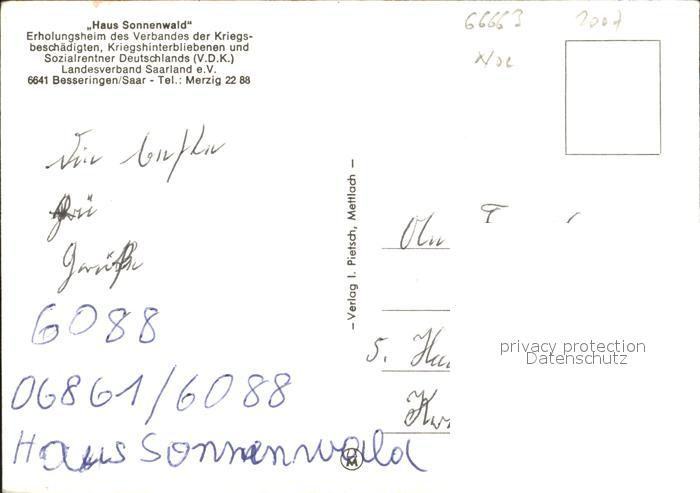 „Haus Sonnenwald"
Erholungsheim des Verbandes der Kriegs-
beschädigten, Kriegshinterbliebenen und
Sozialrentner Deutschlands (V.D.K.)
Landesverband Saarland e.V.
6641 Besseringen/Saar - Tel.: Merzig 22 88
66663
Die besten
Grüße
6088
06861/6088
Haus Sonnenwald
– Verlag I. Pietsch, Mettlach –
5.
privacy protection
Datenschutz